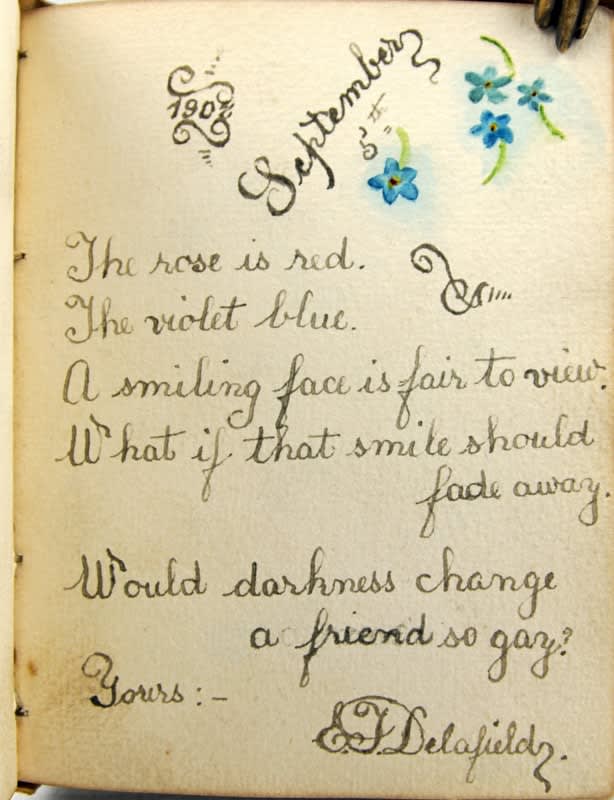 1907
September
5th
The rose is red.
The violet blue.
A smiling face is fair to view.
What if that smile should
fade away.
Would darkness change
a friend so gay?
Yours:-
E.F. Delafield.